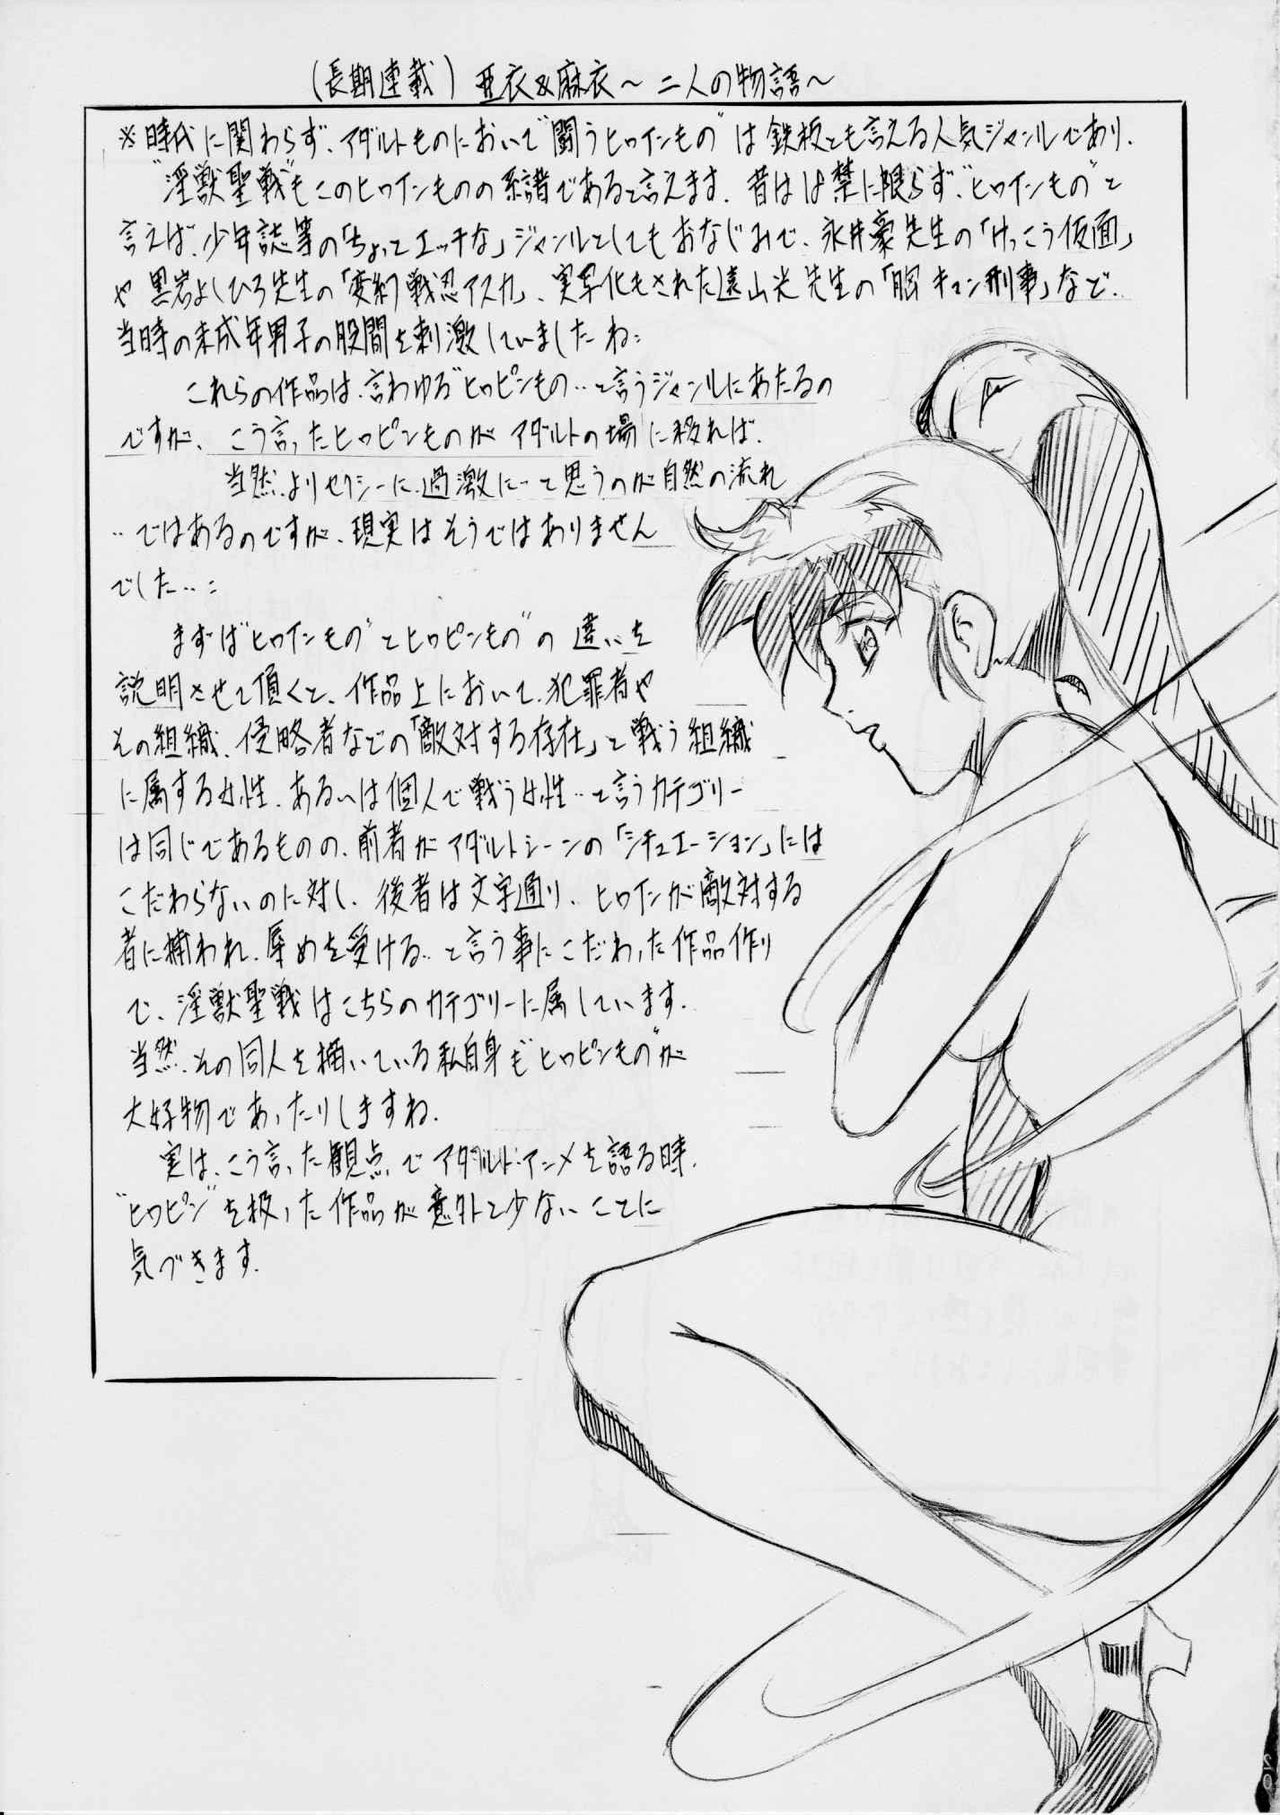 (長期連載) 亜衣&麻衣～二人の物語～
※時代に関わらず、アダルトものにおいて"闘うヒロインもの"は鉄板とも言える人気ジャンルであり、
"淫獣聖戦"もこのヒロインものの系譜であると言えます。昔は18禁に限らず、"ヒロインもの"と
言えば、少年誌等の「ちょっとエッチな」ジャンルとしてもおなじみで、永井豪先生の「けっこう仮面」
や黒岩よしひろ先生の「変幻戦忍アスカ」、実写化もされた遠山光先生の「胸キュン刑事」など‥
当時の未成年男子の股間を刺激していましたね:
これらの作品は、言わゆる"ヒロピンもの‥と言うジャンルにあたるの
ですが、こう言ったヒロピンものがアダルトの場に移れば、
当然、よりセクシーに、過激に‥と思うのが自然の流れ
‥ではあるのですが、現実はそうではありません
でした‥:
まずは"ヒロインもの"とヒロピンもの"の違いを
説明させて頂くと、作品上において、犯罪者や
その組織、侵略者などの「敵対する存在」と戦う組織
に属する女性、あるいは個人で戦う女性‥と言うカテゴリー
は同じであるものの、前者がアダルトシーンの「シチュエーション」には
こだわらないのに対し、後者は文字通り、ヒロインが敵対する
者に捕われ、辱めを受ける‥と言う事にこだわった作品作り
で、淫獣聖戦はこちらのカテゴリーに属しています。
当然、その同人を描いている私自身も"ヒロピンもの"が
大好物であったりしますね。
実は、こう言った観点でアダルトアニメを語る時、
"ヒロピン"を扱った作品が意外と少ないことに
気づきます。